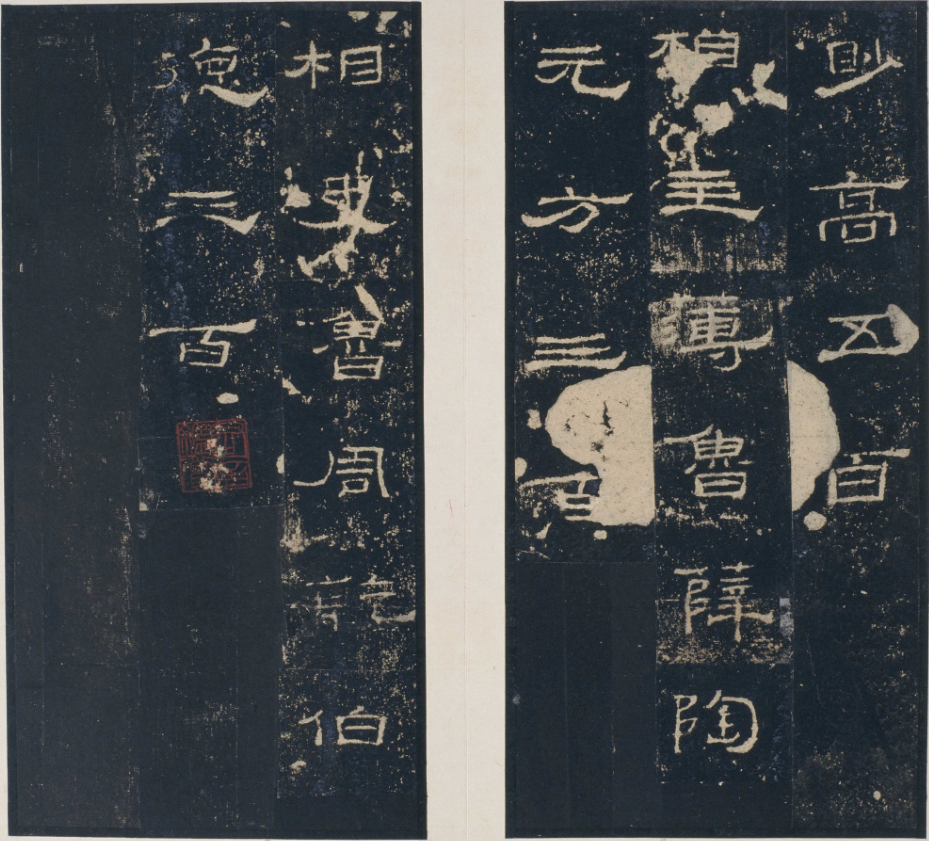 眇高五百
相主薄魯薛陶
元方三百
相史魯周乾伯
德三百